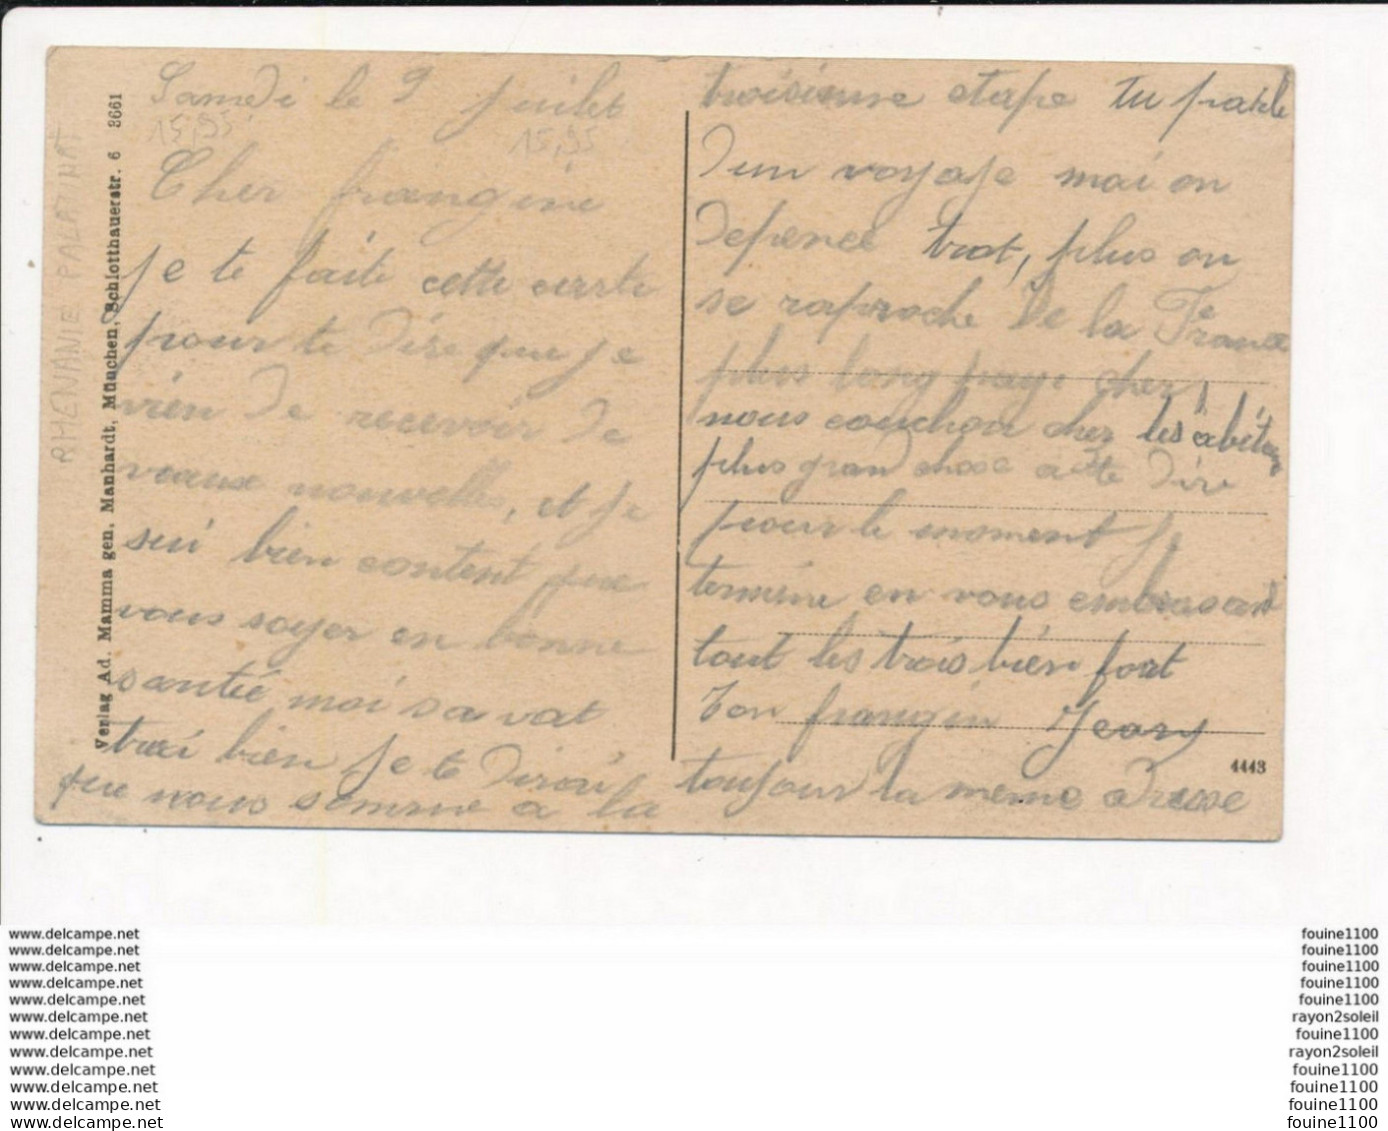 Samedi le 9 juilet
15,95
15,95
Cher frangine
je te faite cette carte
pour te dire que je
vien de recevoir de
vaux nouvelles, et je
sui bien content que
vous soyer en bonne
santié moi sa vat
trai bien je te dirai
que nous somme a la
troisieme etape tu parle
d'un voyage mai on
depence trot, plus on
se raproche de la France
plus long paye cher,
nous couchon cher les
plus grand chose a te dire
pour le moment je
termine en vous embrasant
tout les trois bien fort
Ton frangin
toujour la meme adresse
RHENANIE PALATINAT
Verlag Ad. Mamma gen. Manhardt, München, Schlotthauerstr. 6 3661
4443
www.delcampe.net
www.delcampe.net
www.delcampe.net
www.delcampe.net
www.delcampe.net
www.delcampe.net
www.delcampe.net
www.delcampe.net
www.delcampe.net
www.delcampe.net
www.delcampe.net
www.delcampe.net
fouine1100
fouine1100
fouine1100
fouine1100
fouine1100
rayon2soleil
fouine1100
rayon2soleil
fouine1100
fouine1100
fouine1100
fouine1100